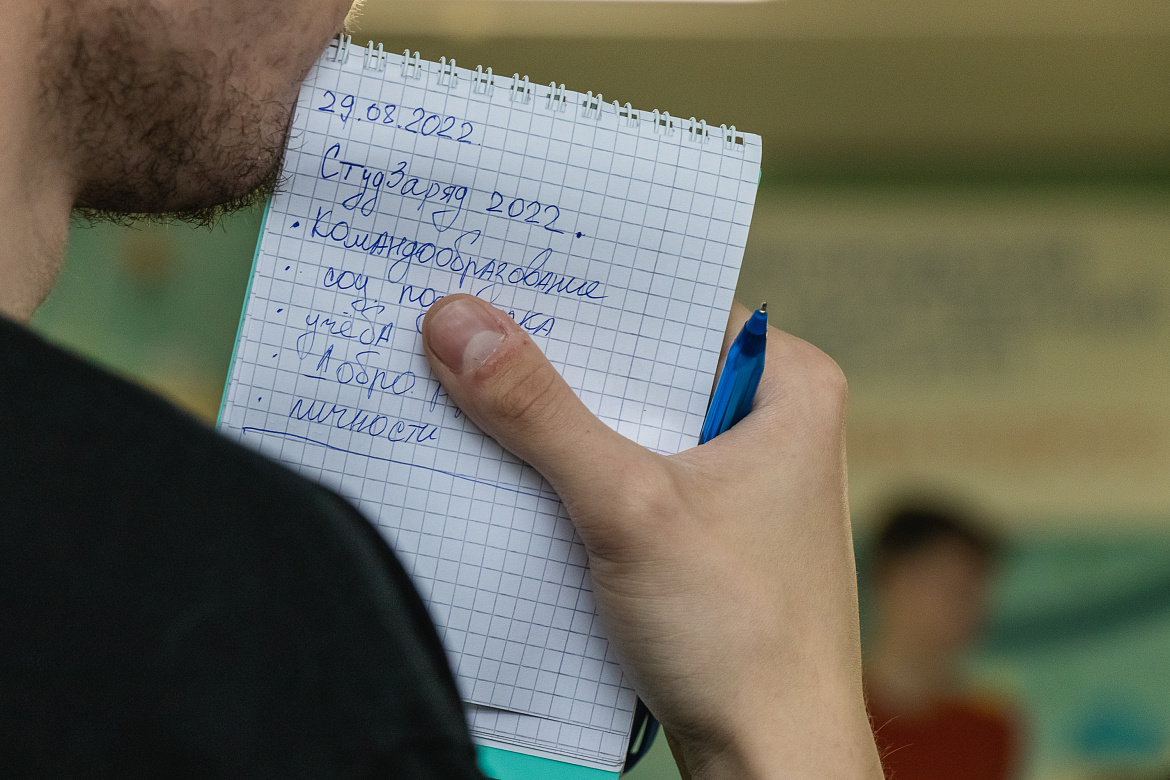 29.08.2022.
СтудЗаряд 2022.
• Командообразование
• соц
• учёба
• Добро.
• личности